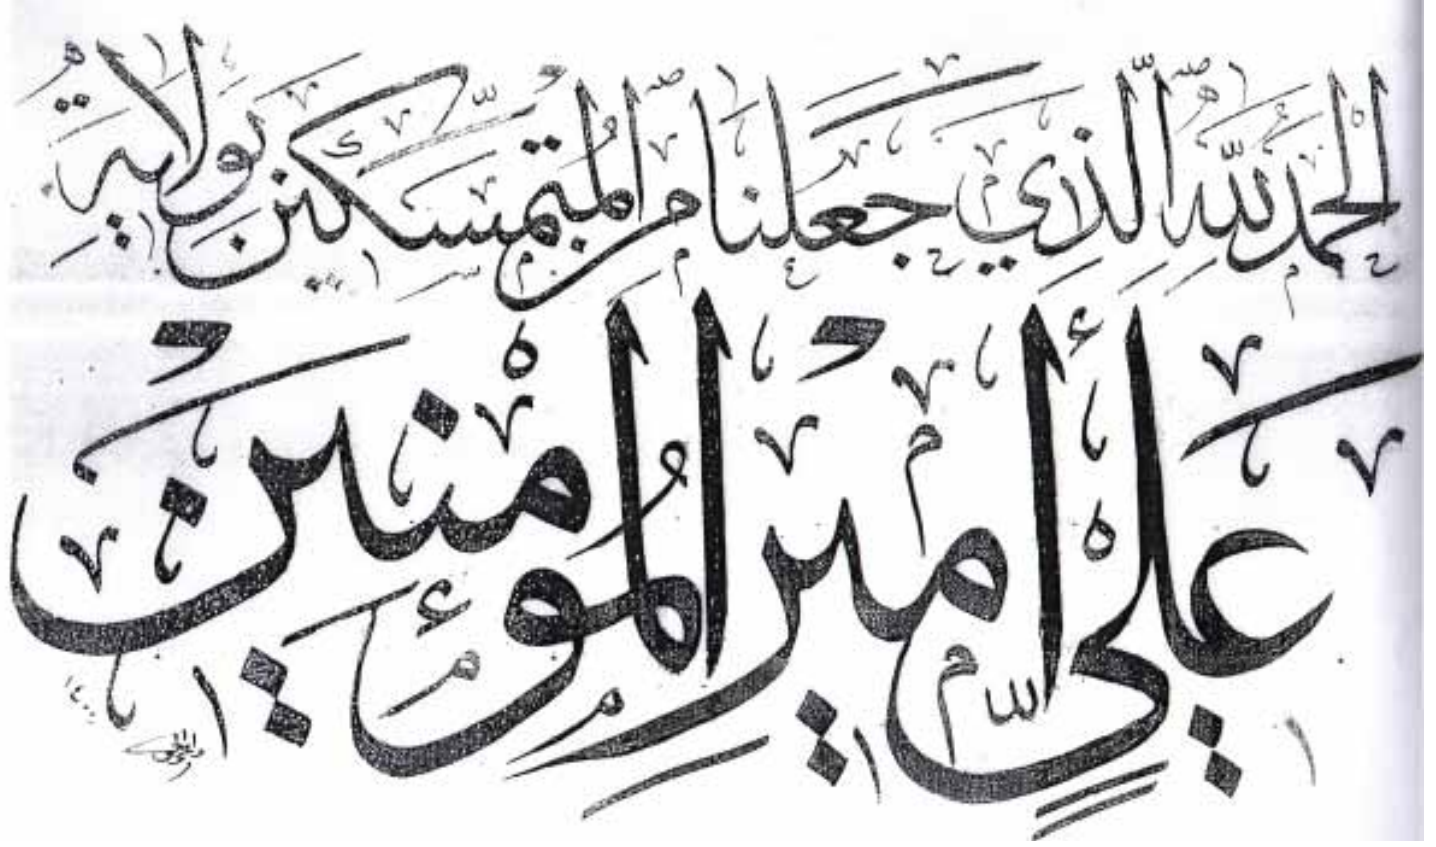 الحمد لله الذي جعلنا من المتمسكين بولاية
علي أمير المؤمنين
١٤٠٠